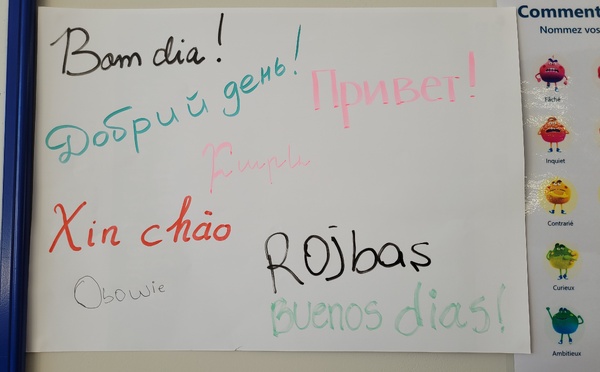 Bom dia!
Добрий день!
Привет!
Xin chào
Obowie
Rojbaş
Buenos dias!
Comment
Nommez vos
Fâché
Inquiet
Contrarié
Curieux
Ambitieux